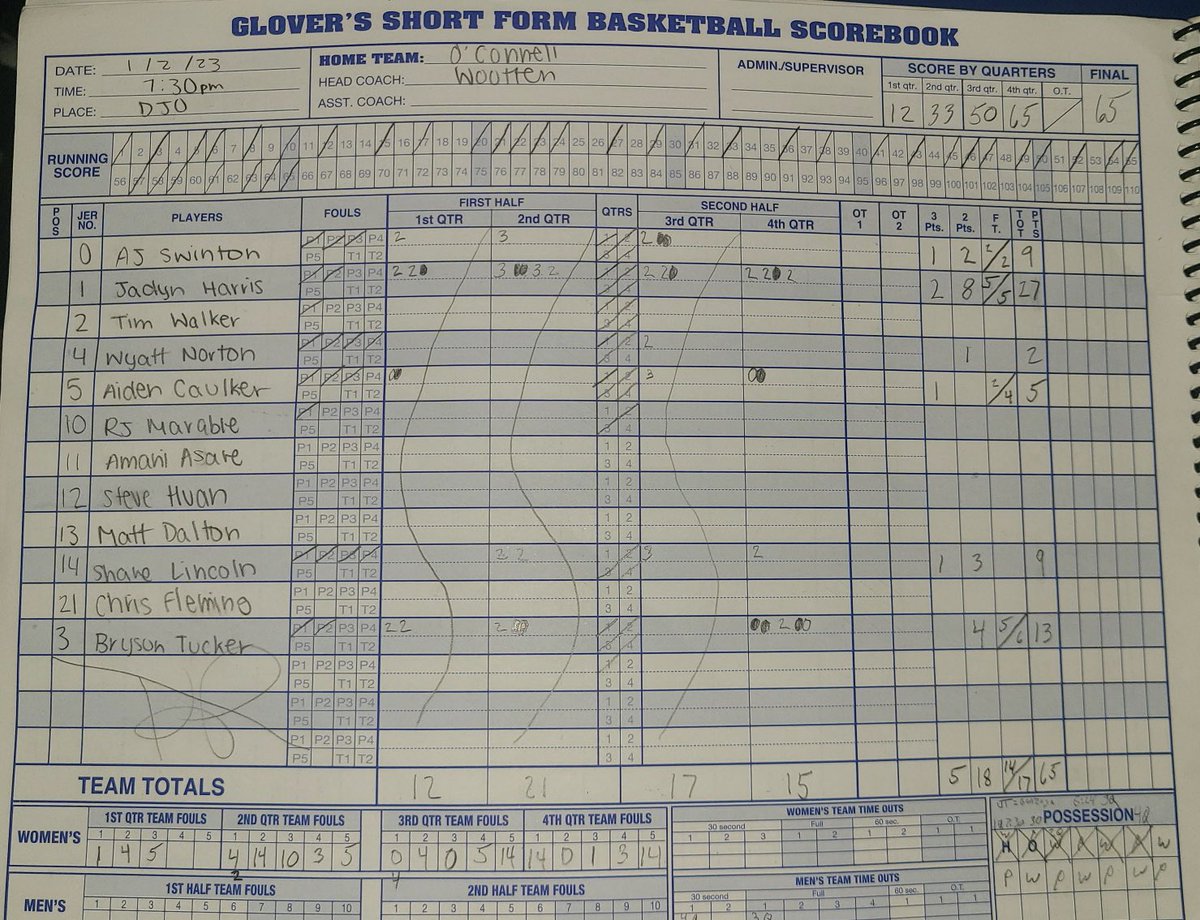 GLOVER'S SHORT FORM BASKETBALL SCOREBOOK
DATE: 1/2/23
TIME: 7:30pm
PLACE: DJO
HOME TEAM: O'Connell
HEAD COACH: Wootten
ASST. COACH:
ADMIN./SUPERVISOR
SCORE BY QUARTERS FINAL
1st qtr. 2nd qtr. 3rd qtr. 4th qtr. O.T.
12 33 50 65 / 65
RUNNING SCORE
1 2 3 4 5 6 7 8 9 10 11 12 13 14 15 16 17 18 19 20 21 22 23 24 25 26 27 28 29 30 31 32 33 34 35 36 37 38 39 40 41 42 43 44 45 46 47 48 49 50 51 52 53 54 55
56 57 58 59 60 61 62 63 64 65 66 67 68 69 70 71 72 73 74 75 76 77 78 79 80 81 82 83 84 85 86 87 88 89 90 91 92 93 94 95 96 97 98 99 100 101 102 103 104 105 106 107 108 109 110
FIRST HALF SECOND HALF
POS JER NO. PLAYERS FOULS 1st QTR 2nd QTR QTRS 3rd QTR 4th QTR OT 1 OT 2 3 Pts. 2 Pts. F T. TOT PTS
0 AJ Swinton P1 P2 P3 P4 2 3 1 2 2 1 2 2/2 9
P5 T1 T2 3 4
1 Jadyn Harris P1 P2 P3 P4 2 2 3 3 2 1 2 2 2 2 2 2 2 8 5/5 27
P5 T1 T2 3 4
2 Tim Walker P1 P2 P3 P4 1 2
P5 T1 T2 3 4
4 Wyatt Norton P1 P2 P3 P4 1 2 2 1 2
P5 T1 T2 3 4
5 Aiden Caulker P1 P2 P3 P4 1 2 3 1 2/4 5
P5 T1 T2 3 4
10 RJ Marable P1 P2 P3 P4 1 2
P5 T1 T2 3 4
11 Amani Asare P1 P2 P3 P4 1 2
P5 T1 T2 3 4
12 Steve Huan P1 P2 P3 P4 1 2
P5 T1 T2 3 4
13 Matt Dalton P1 P2 P3 P4 1 2
P5 T1 T2 3 4
14 Shane Lincoln P1 P2 P3 P4 2 2 1 2 3 2 1 3 9
P5 T1 T2 3 4
21 Chris Fleming P1 P2 P3 P4 1 2
P5 T1 T2 3 4
3 Bryson Tucker P1 P2 P3 P4 2 2 2 1 2 2 4 5/6 13
P5 T1 T2 3 4
P1 P2 P3 P4 1 2
P5 T1 T2 3 4
P1 P2 P3 P4 1 2
P5 T1 T2 3 4
P1 P2 P3 P4 1 2
P5 T1 T2 3 4
TEAM TOTALS 12 21 17 15 5 18 14/17 65
WOMEN'S
1ST QTR TEAM FOULS 2ND QTR TEAM FOULS 3RD QTR TEAM FOULS 4TH QTR TEAM FOULS
1 2 3 4 5 1 2 3 4 5 1 2 3 4 5 1 2 3 4 5
1 4 5 4 14 10 3 5 0 4 0 5 14 14 0 1 3 14
2 4
WOMEN'S TEAM TIME OUTS
30 second Full 60 sec. O.T.
1 2 3 1 2 1 2 1 1
POSSESSION
MEN'S
1ST HALF TEAM FOULS 2ND HALF TEAM FOULS
1 2 3 4 5 6 7 8 9 10 1 2 3 4 5 6 7 8 9 10
MEN'S TEAM TIME OUTS
30 second Full 60 sec. O.T.